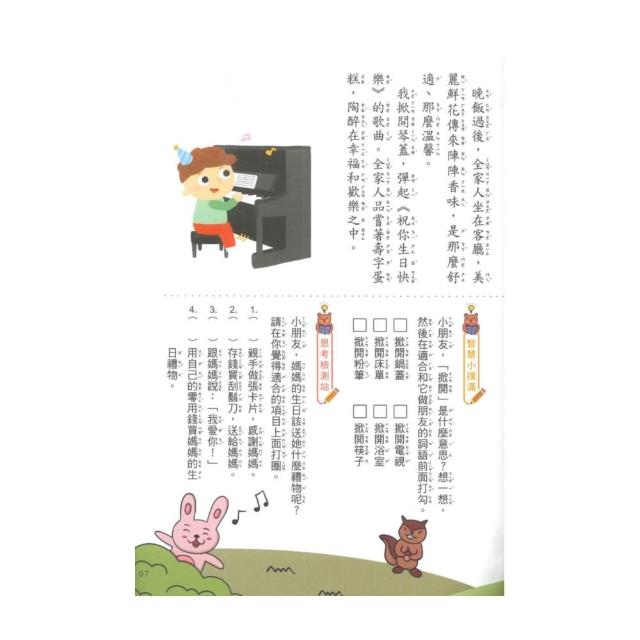 晚飯過後，全家人坐在客廳，美
麗鮮花傳來陣陣香味，是那麼舒
適、那麼溫馨。
我掀開琴蓋，彈起《祝你生日快
樂》的歌曲。全家人品嘗著壽字蛋
糕，陶醉在幸福和歡樂之中。
智慧小撲滿
小朋友，「掀開」是什麼意思？想一想，
然後在適合和它做朋友的詞語前面打勾。
□掀開鍋蓋 □掀開電視
□掀開床單 □掀開浴室
□掀開粉筆 □掀開筷子
思考檢測站
小朋友，媽媽的生日該送她什麼禮物呢？
請在你覺得適合的項目上面打圈。
1.（ ）親手做張卡片，感謝媽媽。
2.（ ）存錢買刮鬍刀，送給媽媽。
3.（ ）跟媽媽說：「我愛你！」
4.（ ）用自己的零用錢買媽媽的生
日禮物。
07